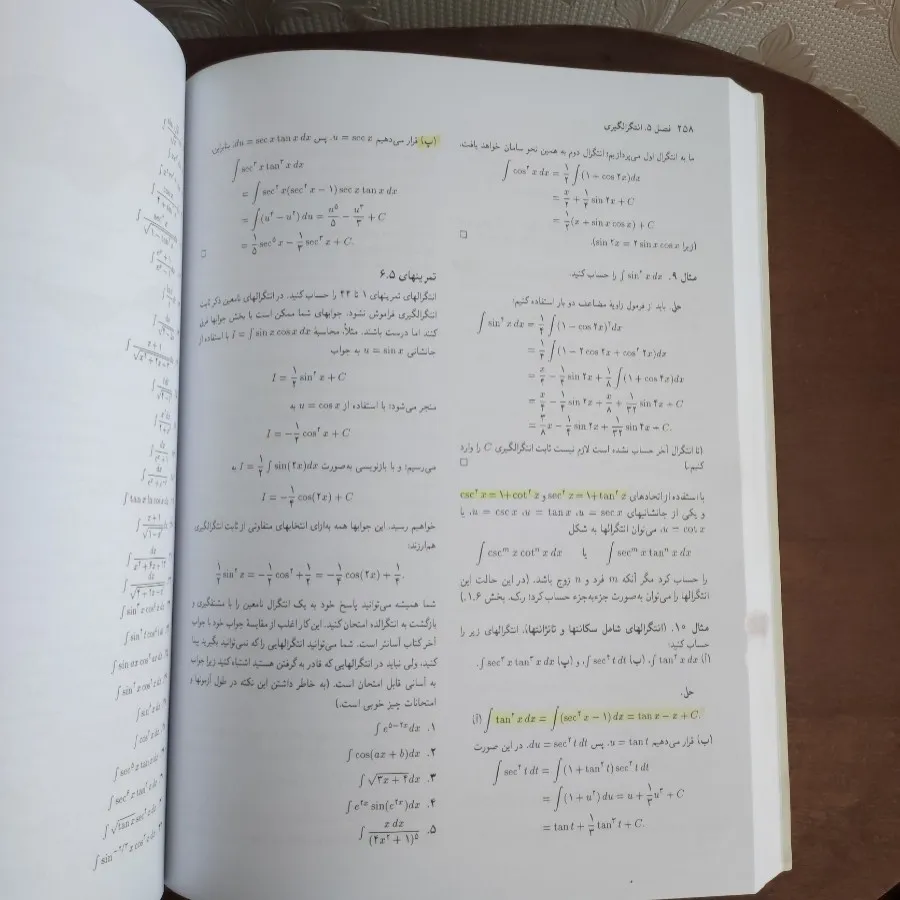 ۲۵۸ فصل ۵. انتگرالگیری
ما به انتگرال اول می‌پردازیم؛ انتگرال دوم به همین نحو سامان خواهد یافت.
∫ cos² x dx = ۱/۲ ∫ (۱ + cos ۲x)dx
= x/۲ + ۱/۴ sin ۲x + C
= ۱/۲ (x + sin x cos x) + C
(زیرا sin ۲x = ۲ sin x cos x).
مثال ۹. ∫ sin⁴ x dx را حساب کنید.
حل. باید از فرمول زاویهٔ مضاعف دو بار استفاده کنیم:
∫ sin⁴ x dx = ۱/۴ ∫ (۱ − cos ۲x)² dx
= ۱/۴ ∫ (۱ − ۲ cos ۲x + cos² ۲x)dx
= x/۴ − ۱/۴ sin ۲x + ۱/۸ ∫ (۱ + cos ۴x)dx
= x/۴ − ۱/۴ sin ۲x + x/۸ + ۱/۳۲ sin ۴x + C
= ۳/۸ x − ۱/۴ sin ۲x + ۱/۳۲ sin ۴x + C.
(تا انتگرال آخر حساب نشده است لازم نیست ثابت انتگرالگیری C را وارد
کنیم.)
با استفاده از اتحادهای sec² x = ۱+tan² x و csc² x = ۱+cot² x
و یکی از جانشانیهای u = sec x، u = tan x، u = csc x، یا
u = cot x، می‌توان انتگرالها به شکل
∫ sec^m x tan^n x dx یا ∫ csc^m x cot^n x dx
را حساب کرد مگر آنکه m فرد و n زوج باشد. (در این حالت این
انتگرالها را می‌توان به‌صورت جزءبه‌جزء حساب کرد؛ رک. بخش ۱.۶.)
مثال ۱۰. (انتگرالهای شامل سکانتها و تانژانتها). انتگرالهای زیر را
حساب کنید:
(آ) ∫ tan² x dx، (ب) ∫ sec⁴ t dt، و (پ) ∫ sec³ x tan³ x dx.
حل.
(آ) ∫ tan² x dx = ∫ (sec² x − ۱) dx = tan x − x + C.
(ب) قرار می‌دهیم u = tan t. پس du = sec² t dt. در این صورت
∫ sec⁴ t dt = ∫ (۱ + tan² t) sec² t dt
= ∫ (۱ + u²) du = u + ۱/۳ u³ + C
= tan t + ۱/۳ tan³ t + C.
(پ) قرار می‌دهیم u = sec x. پس du = sec x tan x dx. بنابراین
∫ sec³ x tan³ x dx
= ∫ sec² x(sec² x − ۱) sec x tan x dx
= ∫ (u⁴ − u²) du = u⁵/۵ − u³/۳ + C
= ۱/۵ sec⁵ x − ۱/۳ sec³ x + C.
تمرینهای ۶.۵
انتگرالهای تمرینهای ۱ تا ۴۴ را حساب کنید. در انتگرالهای نامعین ذکر ثابت
انتگرالگیری فراموش نشود. جوابهای شما ممکن است با بخش جوابها فرق
کنند اما درست باشند. مثلاً، محاسبهٔ I = ∫ sin x cos x dx با استفاده از
جانشانی u = sin x به جواب
I = ۱/۲ sin² x + C
منجر می‌شود؛ با استفاده از u = cos x به
I = −۱/۲ cos² x + C
می‌رسیم؛ و با بازنویسی به‌صورت I = ۱/۲ ∫ sin(۲x)dx به
I = −۱/۴ cos(۲x) + C
خواهیم رسید. این جوابها همه به‌ازای انتخابهای متفاوتی از ثابت انتگرالگیری
هم‌ارزند:
۱/۲ sin² x = −۱/۲ cos² + ۱/۲ = −۱/۴ cos(۲x) + ۱/۴.
شما همیشه می‌توانید پاسخ خود به یک انتگرال نامعین را با مشتقگیری و
بازگشت به انتگرالده امتحان کنید. این کار اغلب از مقایسهٔ جواب خود با جواب
آخر کتاب آسانتر است. شما می‌توانید انتگرالهایی را که نمی‌توانید بگیرید پیدا
کنید، ولی نباید در انتگرالهایی که قادر به گرفتن هستید اشتباه کنید زیرا جواب
به آسانی قابل امتحان است. (به خاطر داشتن این نکته در طول آزمونها و
امتحانات چیز خوبی است.)
۱. ∫ e^(۵−۲x) dx
۲. ∫ cos(ax + b)dx
۳. ∫ √(۳x + ۴) dx
۴. ∫ e^(۲x) sin(e^(۲x))dx
۵. ∫ x dx/(۴x² + ۱)⁵